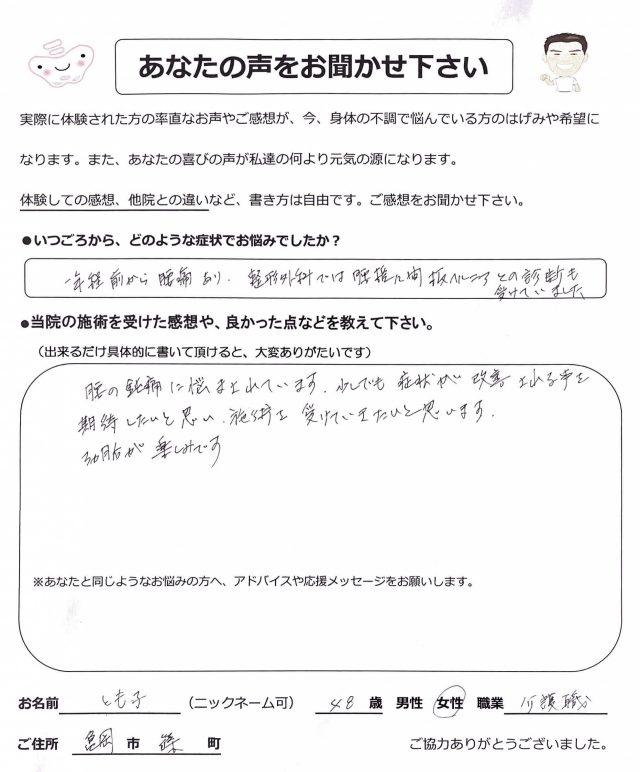 あなたの声をお聞かせ下さい
実際に体験された方の率直なお声やご感想が、今、身体の不調で悩んでいる方のはげみや希望に
なります。また、あなたの喜びの声が私達の何より元気の源になります。
体験しての感想、他院との違いなど、書き方は自由です。ご感想をお聞かせ下さい。
●いつごろから、どのような症状でお悩みでしたか？
一年程前から腰痛あり. 整形外科では腰椎椎間板ヘルニアとの診断も
受けていました
●当院の施術を受けた感想や、良かった点などを教えて下さい。
（出来るだけ具体的に書いて頂けると、大変ありがたいです）
腰の鈍痛に悩まされています. 少しでも症状が改善される事を
期待したいと思い. 施術を受けていきたいと思います.
3ヵ月后が楽しみです
※あなたと同じようなお悩みの方へ、アドバイスや応援メッセージをお願いします。
お名前 とも子 （ニックネーム可） 48 歳 男性 女性 職業 介護職
ご住所 亀岡 市 篠 町 ご協力ありがとうございました。